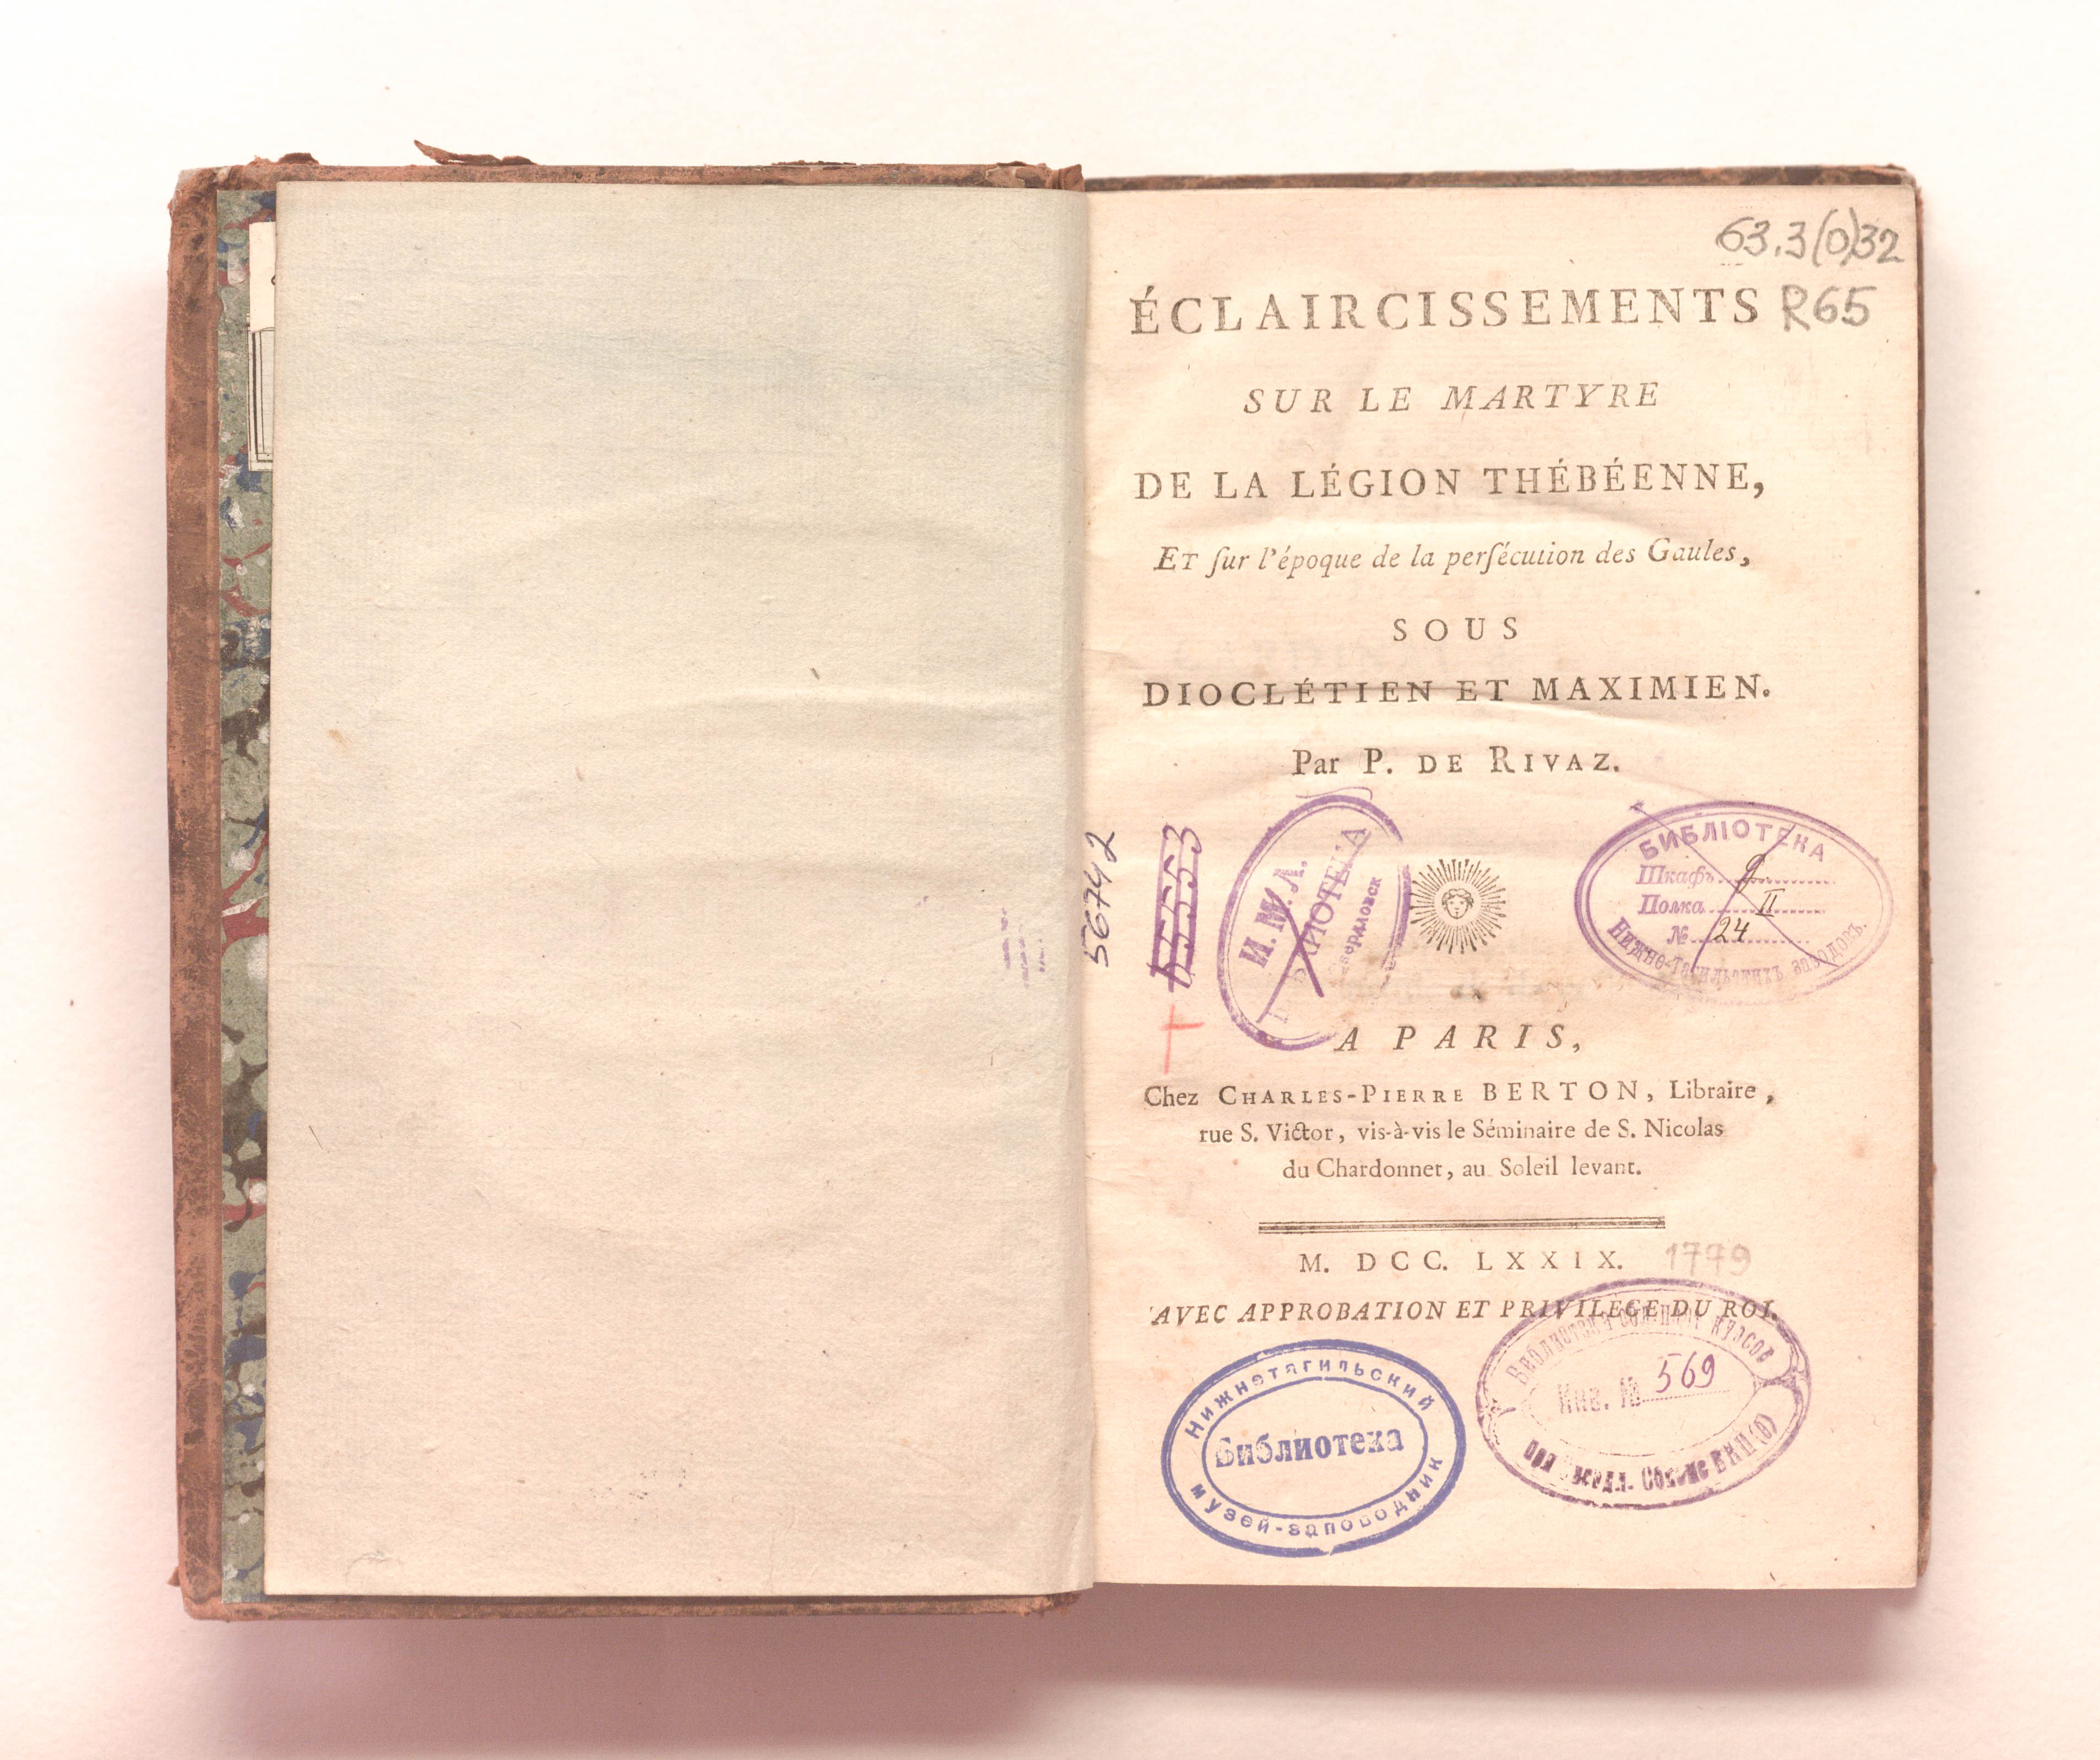 63.3(0)32
R65
ÉCLAIRCISSEMENTS
SUR LE MARTYRE
DE LA LÉGION THÉBÉENNE,
ET ſur l'époque de la perſécution des Gaules,
SOUS
DIOCLÉTIEN ET MAXIMIEN.
Par P. DE RIVAZ.
56742
И.М.Л.
БИБЛІОТЕКА
Шкафъ 9
Полка II
№ 24
Нижне-Тагильскихъ заводовъ.
A PARIS,
Chez CHARLES-PIERRE BERTON, Libraire,
rue S. Victor, vis-à-vis le Séminaire de S. Nicolas
du Chardonnet, au Soleil levant.
M. DCC. LXXIX.
1779
AVEC APPROBATION ET PRIVILEGE DU ROI.
Нижнетагильский
Библиотека
музей-заповедник
Библиотека
Инв. № 569